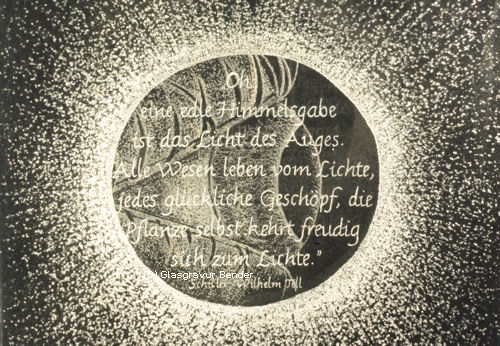 Oh!
eine edle Himmelsgabe
ist das Licht des Auges.
Alle Wesen leben vom Lichte,
jedes glückliche Geschöpf, die
Pflanze selbst kehrt freudig
sich zum Lichte."
Glasgravur Bender
Schiller, Wilhelm Tell